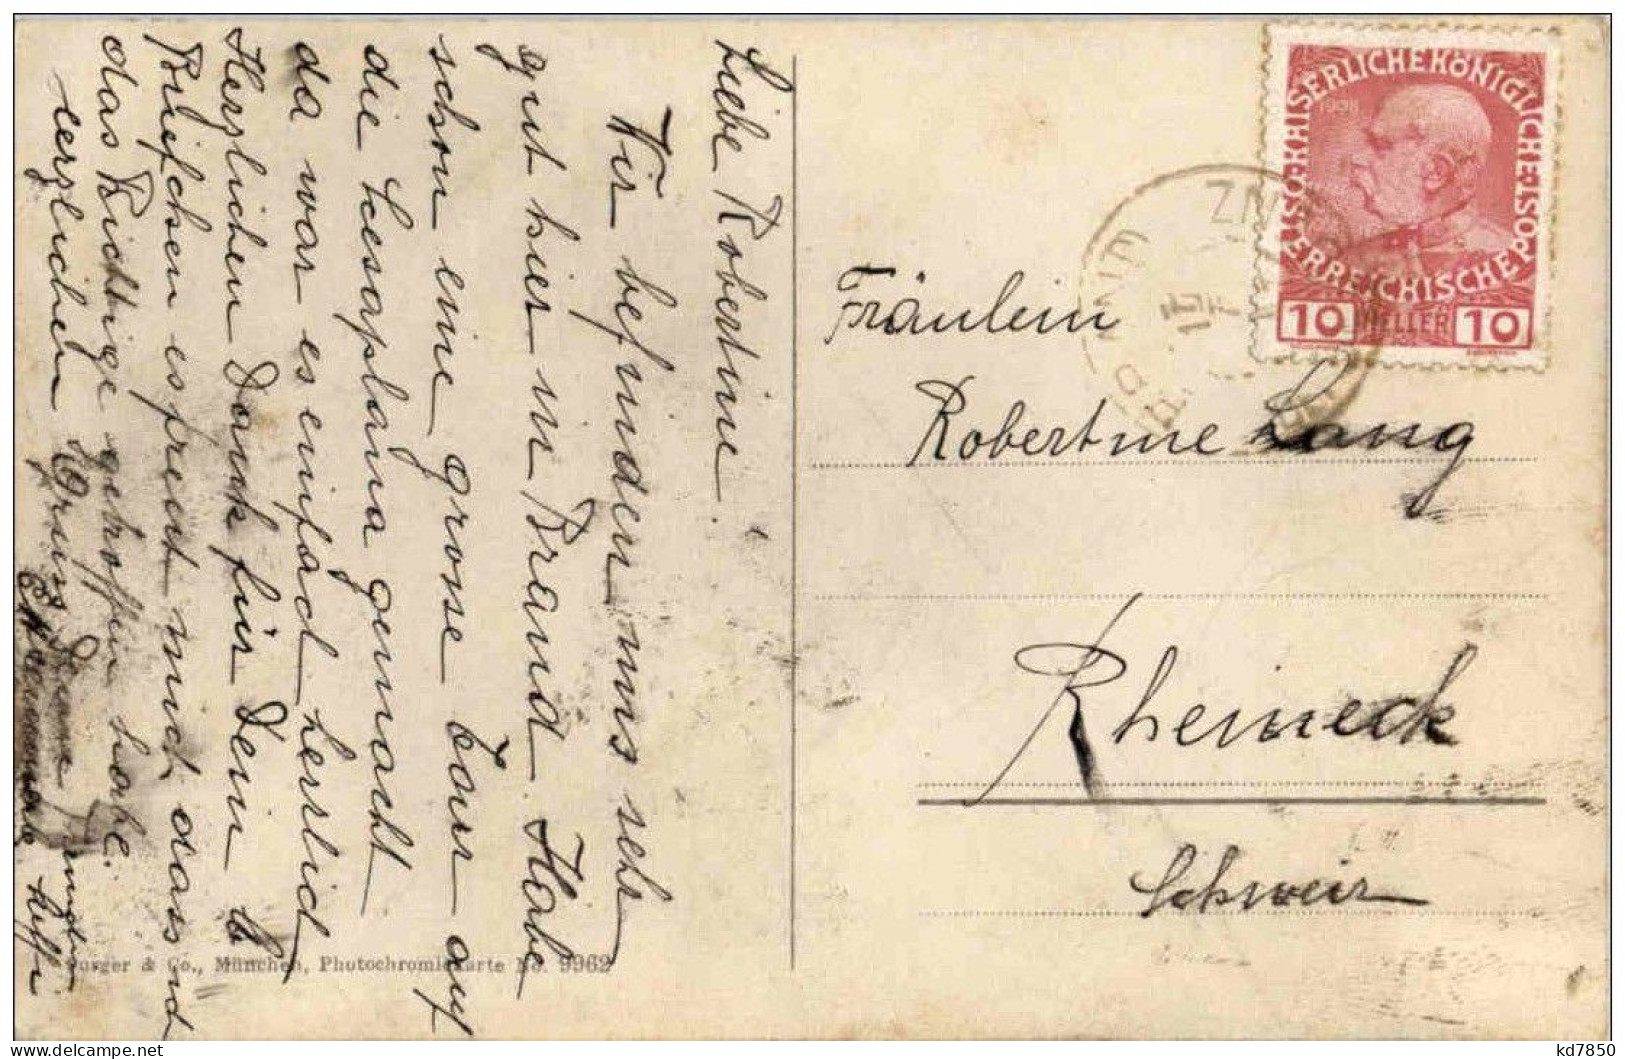 Liebe Robertine.
Wir befinden uns sehr
gut hier in Brand. Habe
schon eine grosse Tour auf
die Scesaplana gemacht
da war es einfach herrlich
Herzlichen Dank für Dein
Briefchen es freut mich dass ich
das Richtige getroffen habe.
herzlichen Gruss
Burger & Co., München, Photochromiekarte No. 9962
KAISERLICHE KÖNIGLICHE
ÖSTERREICHISCHE POST
1908
10 HELLER 10
Fräulein
Robertine Lang
Rheineck
Schweiz
kd7850